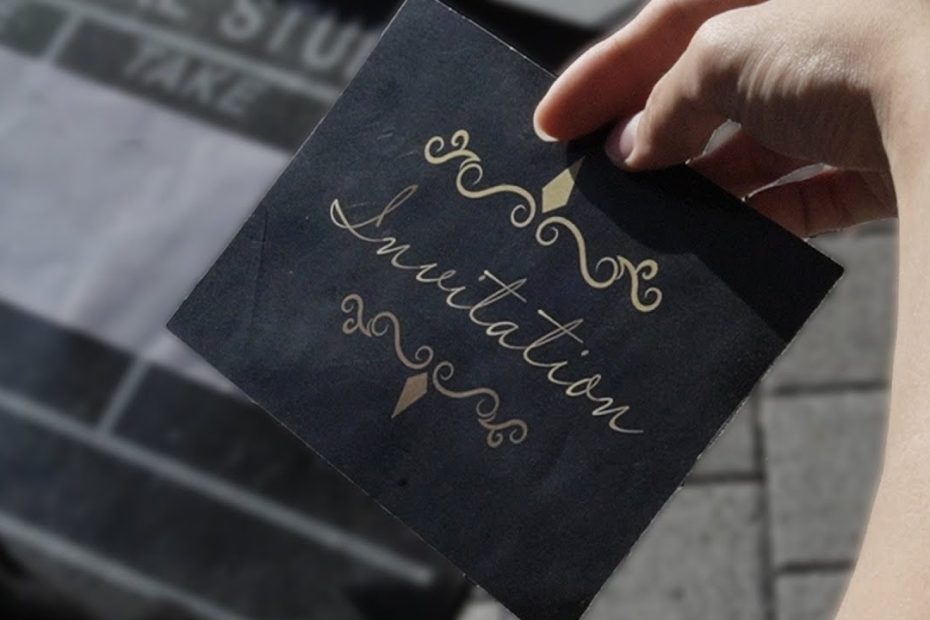 TAKE
Invitation